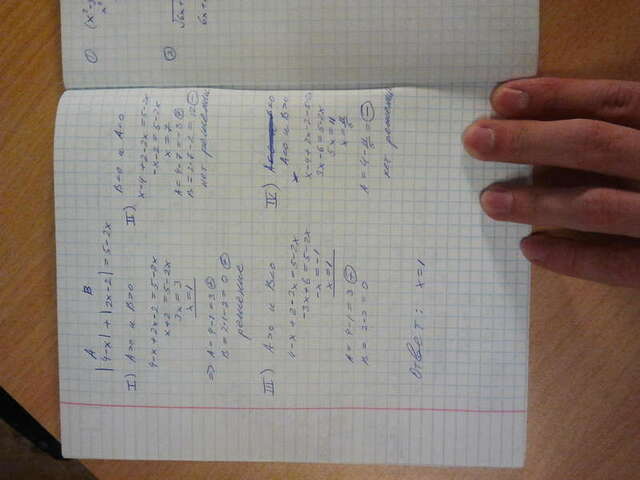 ①
②
A B
|4-x| + |2x-2| = 5-2x
I) A>0 и B>0
4-x+2x-2=5-2x
x+2=5-2x
3x=3
x=1
=> A=4-1=3 ⊕
B=2·1-2=0 ⊕
решение
II) B<0 и A<0
x-4+2-2x=5-2x
-x-2=5-2x
x=7
нет решени
III) A>0 и B<0
4-x+2-2x=5-2x
-3x+6=5-2x
-x=-1
x=1
A=4-1=3 ⊕
B=2-2=0
IV)
A<0 и B>0
3x-6=5-2x
5x=11
нет решени
Ответ: x=1